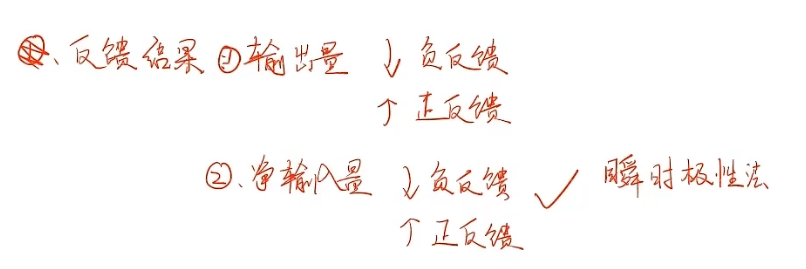 、反馈结果 ①输出量 ↓ 负反馈
↑ 正反馈
②、净输入量 ↓ 负反馈 ✓ 瞬时极性法
↑ 正反馈